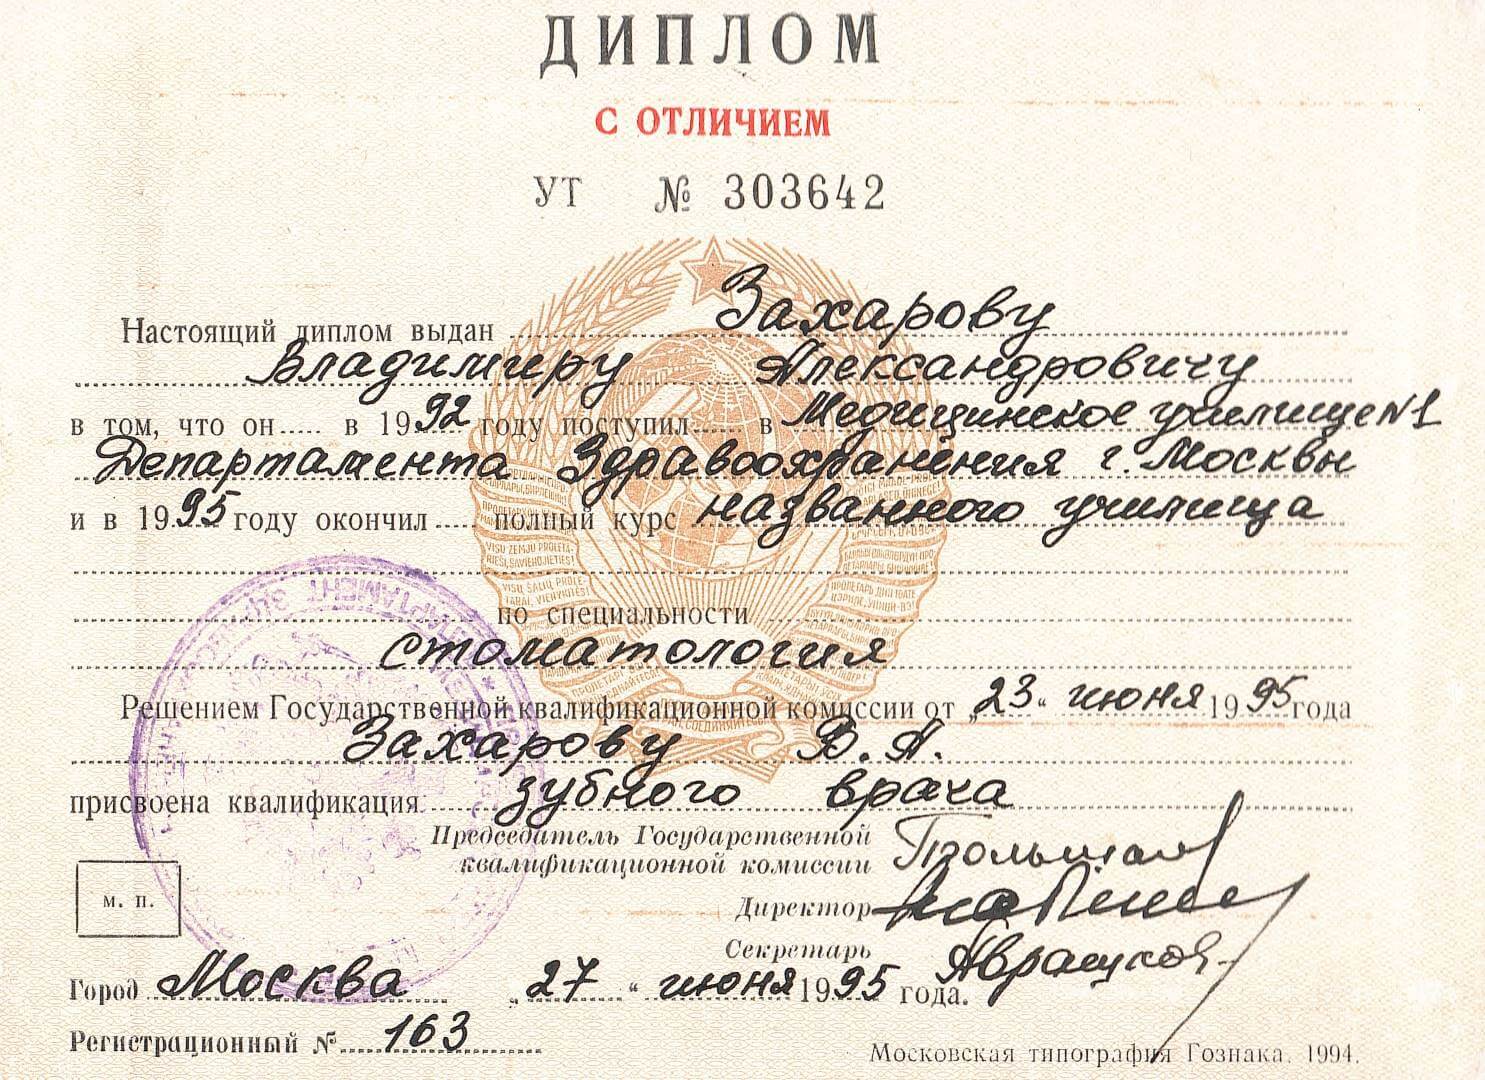 ДИПЛОМ
С ОТЛИЧИЕМ
УТ № 303642
Настоящий диплом выдан Захарову
Владимиру Александровичу
в том, что он в 1992 году поступил в Медицинское училище N1
Департамента Здравоохранения г. Москвы
и в 1995 году окончил полный курс названного училища
по специальности
стоматология
Решением Государственной квалификационной комиссии от „23“ июня 1995 года
Захарову В. А.
присвоена квалификация зубного врача
Председатель Государственной
квалификационной комиссии
М. П.
Директор
Секретарь
Город Москва „27“ июня 1995 года.
Регистрационный № 163
Московская типография Гознака. 1994.